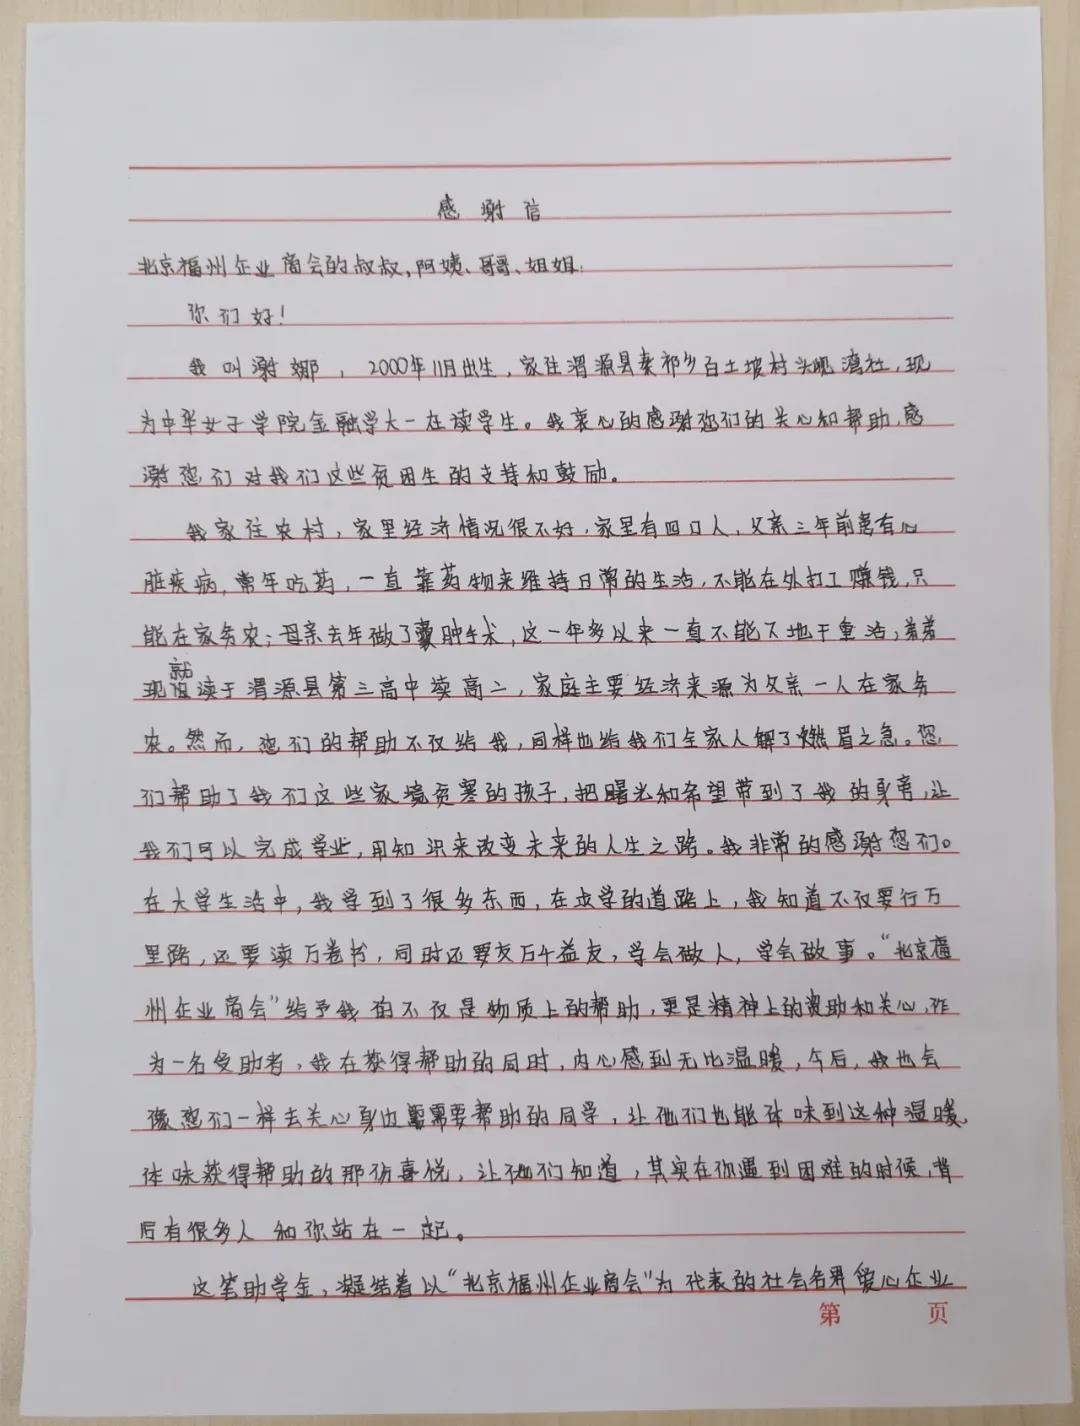 感谢信
北京福州企业商会的叔叔,阿姨、哥哥、姐姐:
你们好!
我叫谢娜，2000年11月出生，家住渭源县秦祁乡白土坡村头岘湾社,现
为中华女子学院金融学大一在读学生。我衷心的感谢您们的关心和帮助,感
谢您们对我们这些贫困生的支持和鼓励。
我家住农村，家里经济情况很不好,家里有四口人,父亲三年前患有心
脏疾病,常年吃药，一直靠药物来维持日常的生活,不能在外打工赚钱,只
能在家务农;母亲去年做了囊肿手术,这一年多以来一直不能下地干重活,弟弟
现就读于渭源县第三高中读高二，家庭主要经济来源为父亲一人在家务
农。然而,您们的帮助不仅给我,同样也给我们全家人解了燃眉之急。您
们帮助了我们这些家境贫寒的孩子,把曙光和希望带到了我的身旁,让
我们可以完成学业,用知识来改变未来的人生之路。我非常的感谢您们。
在大学生活中,我学到了很多东西,在求学的道路上,我知道不仅要行万
里路,还要读万卷书,同时还要交万千益友,学会做人,学会做事。“北京福
州企业商会”给予我的不仅是物质上的帮助,更是精神上的资助和关心,作
为一名受助者,我在获得帮助的同时,内心感到无比温暖,今后,我也会
像您们一样去关心身边需要帮助的同学,让他们也能体味到这种温暖,
体味获得帮助的那份喜悦,让他们知道,其实在你遇到困难的时候,背
后有很多人和你站在一起。
这笔助学金,凝结着以“北京福州企业商会”为代表的社会各界爱心企业
第 页